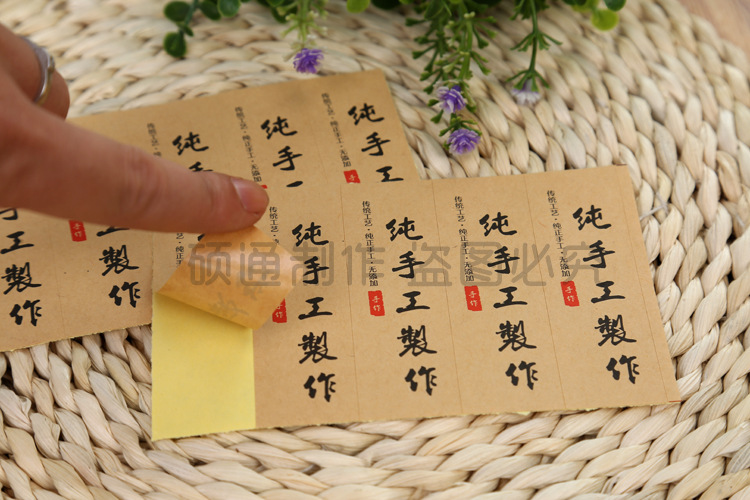 传统工艺·纯正手工·无添加
纯手工
手作
传统工艺·纯正手工·无添加
纯手工
传统工艺·纯正手工·无添加
纯手工製作
手作
传统工艺·纯正手工·无添加
纯手工製作
手作
传统工艺·纯正手工·无添加
纯手工製作
手作
传统工艺·纯正手工·无添加
纯手工製作
手作
工製作
手作
工製作
硕通制作 盗图必究